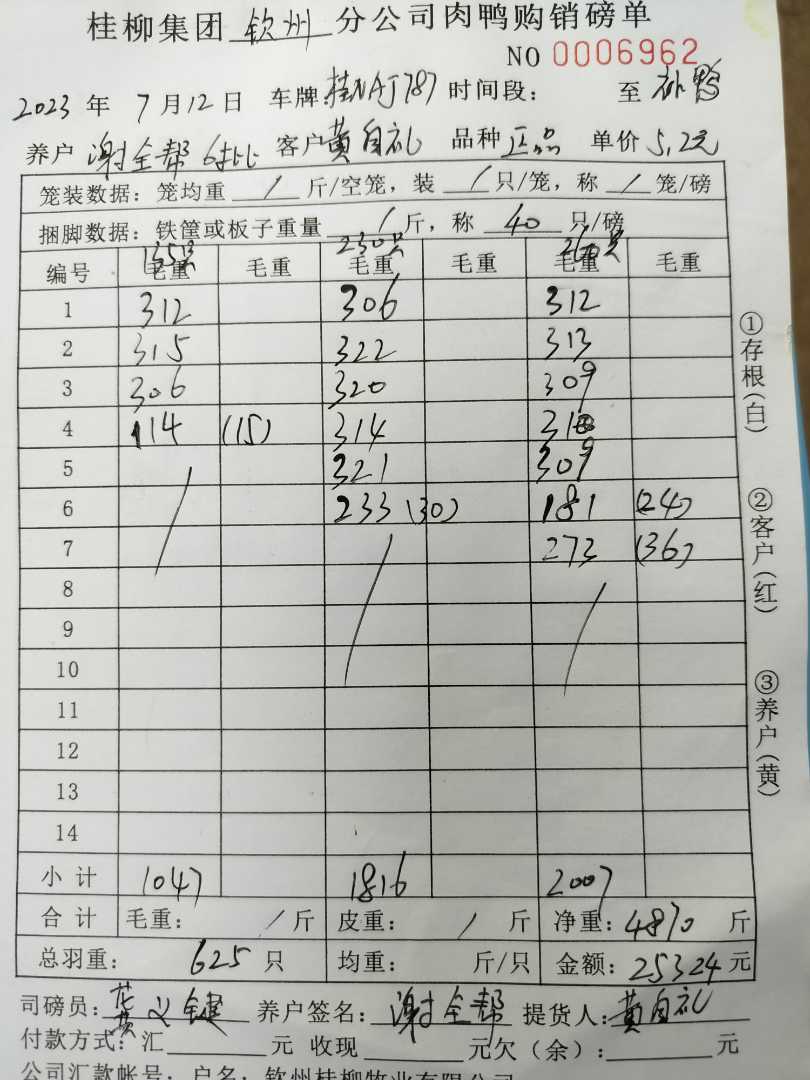 桂柳集团 钦州 分公司肉鸭购销磅单
NO 0006962
2023 年 7 月 12 日 车牌:桂NAJ787 时间段: 至 补鸭
养户 谢全帮 6批 客户 黄自礼 品种 正品 单价 5.2元
笼装数据:笼均重 / 斤/空笼,装 / 只/笼,称 / 笼/磅
捆脚数据:铁筐或板子重量 / 斤,称 40 只/磅
135只 230只 260只
编号 毛重 毛重 毛重 毛重 毛重 毛重
1 312 306 312
2 315 322 313
3 306 320 309
4 114 (15) 314 310
5 321 309
6 233 (30) 181 (24)
7 273 (36)
8
9
10
11
12
13
14
小 计 1047 1816 2007
合 计 毛重: / 斤 皮重: / 斤 净重: 4870 斤
总羽重: 625 只 均重: 斤/只 金额: 25324 元
司磅员: 义键 养户签名: 谢全帮 提货人: 黄自礼
付款方式:汇 元 收现 元欠(余): 元
公司汇款帐号:户名:钦州桂柳牧业有限公司
①存根(白)
②客户(红)
③养户(黄)